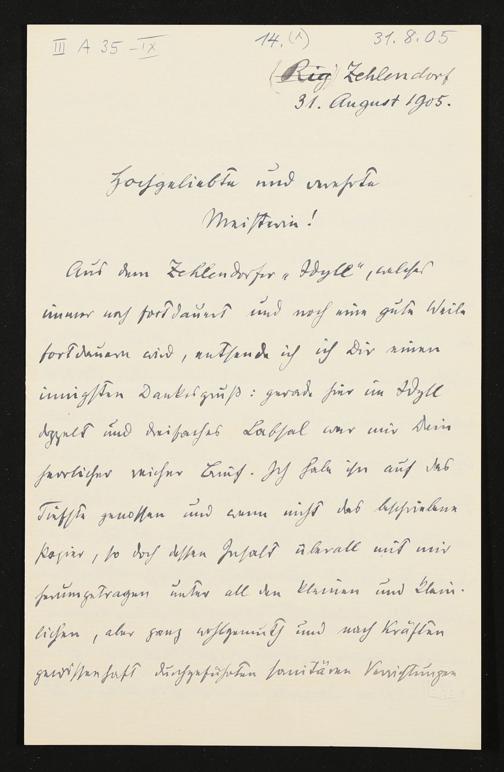 III A 35 - IX
14. (A) 31.8.05
(Rig) Zehlendorf
31. August 1905.
Hochgeliebte und verehrte
Meisterin!
Aus dem Zehlendorfer „Idyll“, welches
immer noch fortdauert und noch eine gute Weile
fortdauern wird, entsende ich ich Dir einen
innigsten Dankesgruß: gerade hier im Idyll
doppelt und dreifaches Labsal war mir Dein
herrlicher reicher Brief. Ich habe ihn auf das
Tiefste genossen und wenn nicht das beschriebene
Papier, so doch dessen Inhalt überall mit mir
herumgetragen unter all den kleinen und klein-
lichen, aber ganz wohlgemuth und nach Kräften
gewissenhaft durchgeführten sanitären Verrichtungen